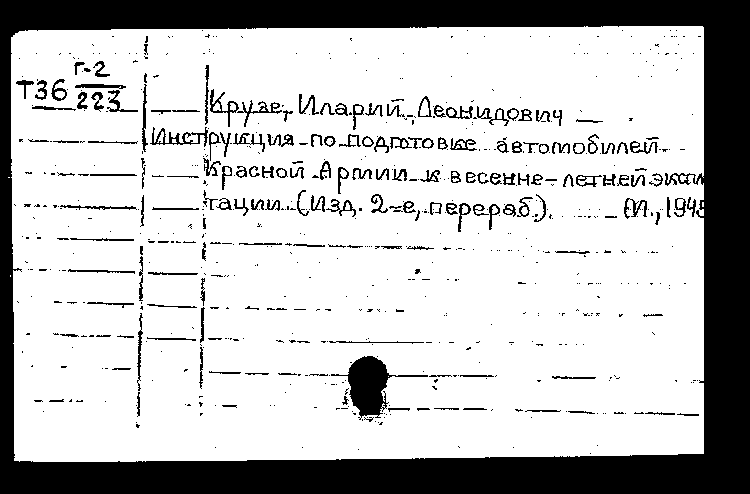 Г-2
Т36 223
Крузе, Иларий Леонидович
Инструкция по подготовке автомобилей
Красной Армии к весенне-летней экспл
тации (Изд. 2-е, перераб.). М., 1945